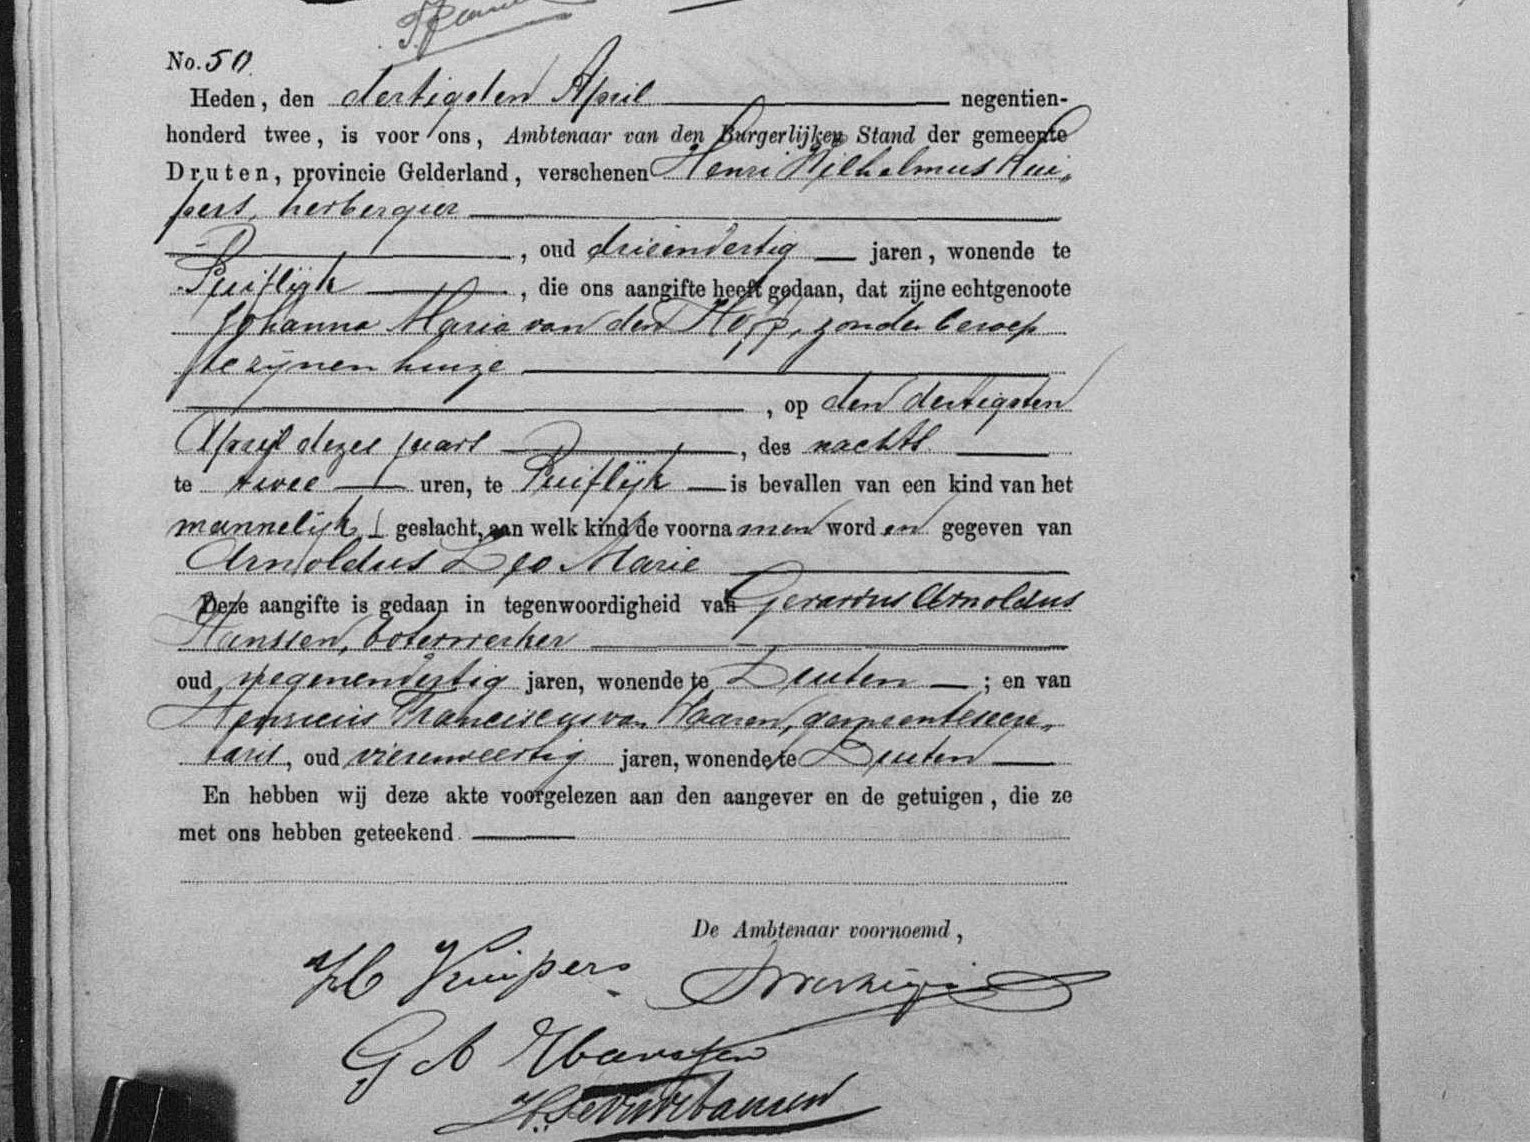 No. 50.
Heden, den dertigsten April negentien-
honderd twee, is voor ons, Ambtenaar van den Burgerlijken Stand der gemeente
Druten, provincie Gelderland, verschenen Henri Wilhelmus Kui-
pers, herbergier
, oud drieendertig jaren, wonende te
Puiflijk, die ons aangifte heeft gedaan, dat zijne echtgenoote
Johanna Maria van den, zonder beroep
te zijnen huize
, op den dertigsten
April dezes jaars, des nachts
te twee uren, te Puiflijk is bevallen van een kind van het
mannelijk geslacht, aan welk kind de voornamen worden gegeven van
Arnoldus Leo Marie
Deze aangifte is gedaan in tegenwoordigheid van Gerardus Arnoldus
Hanssen, boterwerker
oud negenendertig jaren, wonende te Druten; en van
Henricus Franciscus van Haaren, gemeentesecre-
taris, oud vierenveertig jaren, wonende te Druten
En hebben wij deze akte voorgelezen aan den aangever en de getuigen, die ze
met ons hebben geteekend.
De Ambtenaar voornoemd,
H Kuipers
G A Hanssen